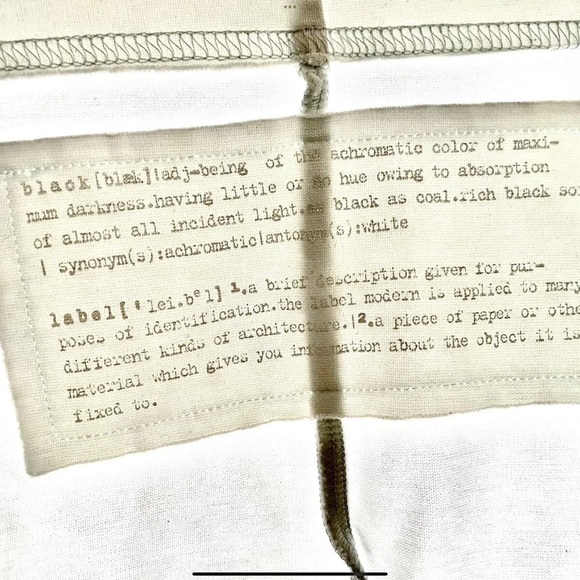 black[blæk]|adj-being of the achromatic color of maxi-
mum darkness.having little or no hue owing to absorption
of almost all incident light.as black as coal.rich black soi
| synonym(s):achromatic|antonym(s):white
label['lei.bᵉl] 1.a brief description given for pur-
poses of identification.the label modern is applied to many
different kinds of architecture.|2.a piece of paper or othe
material which gives you information about the object it is
fixed to.